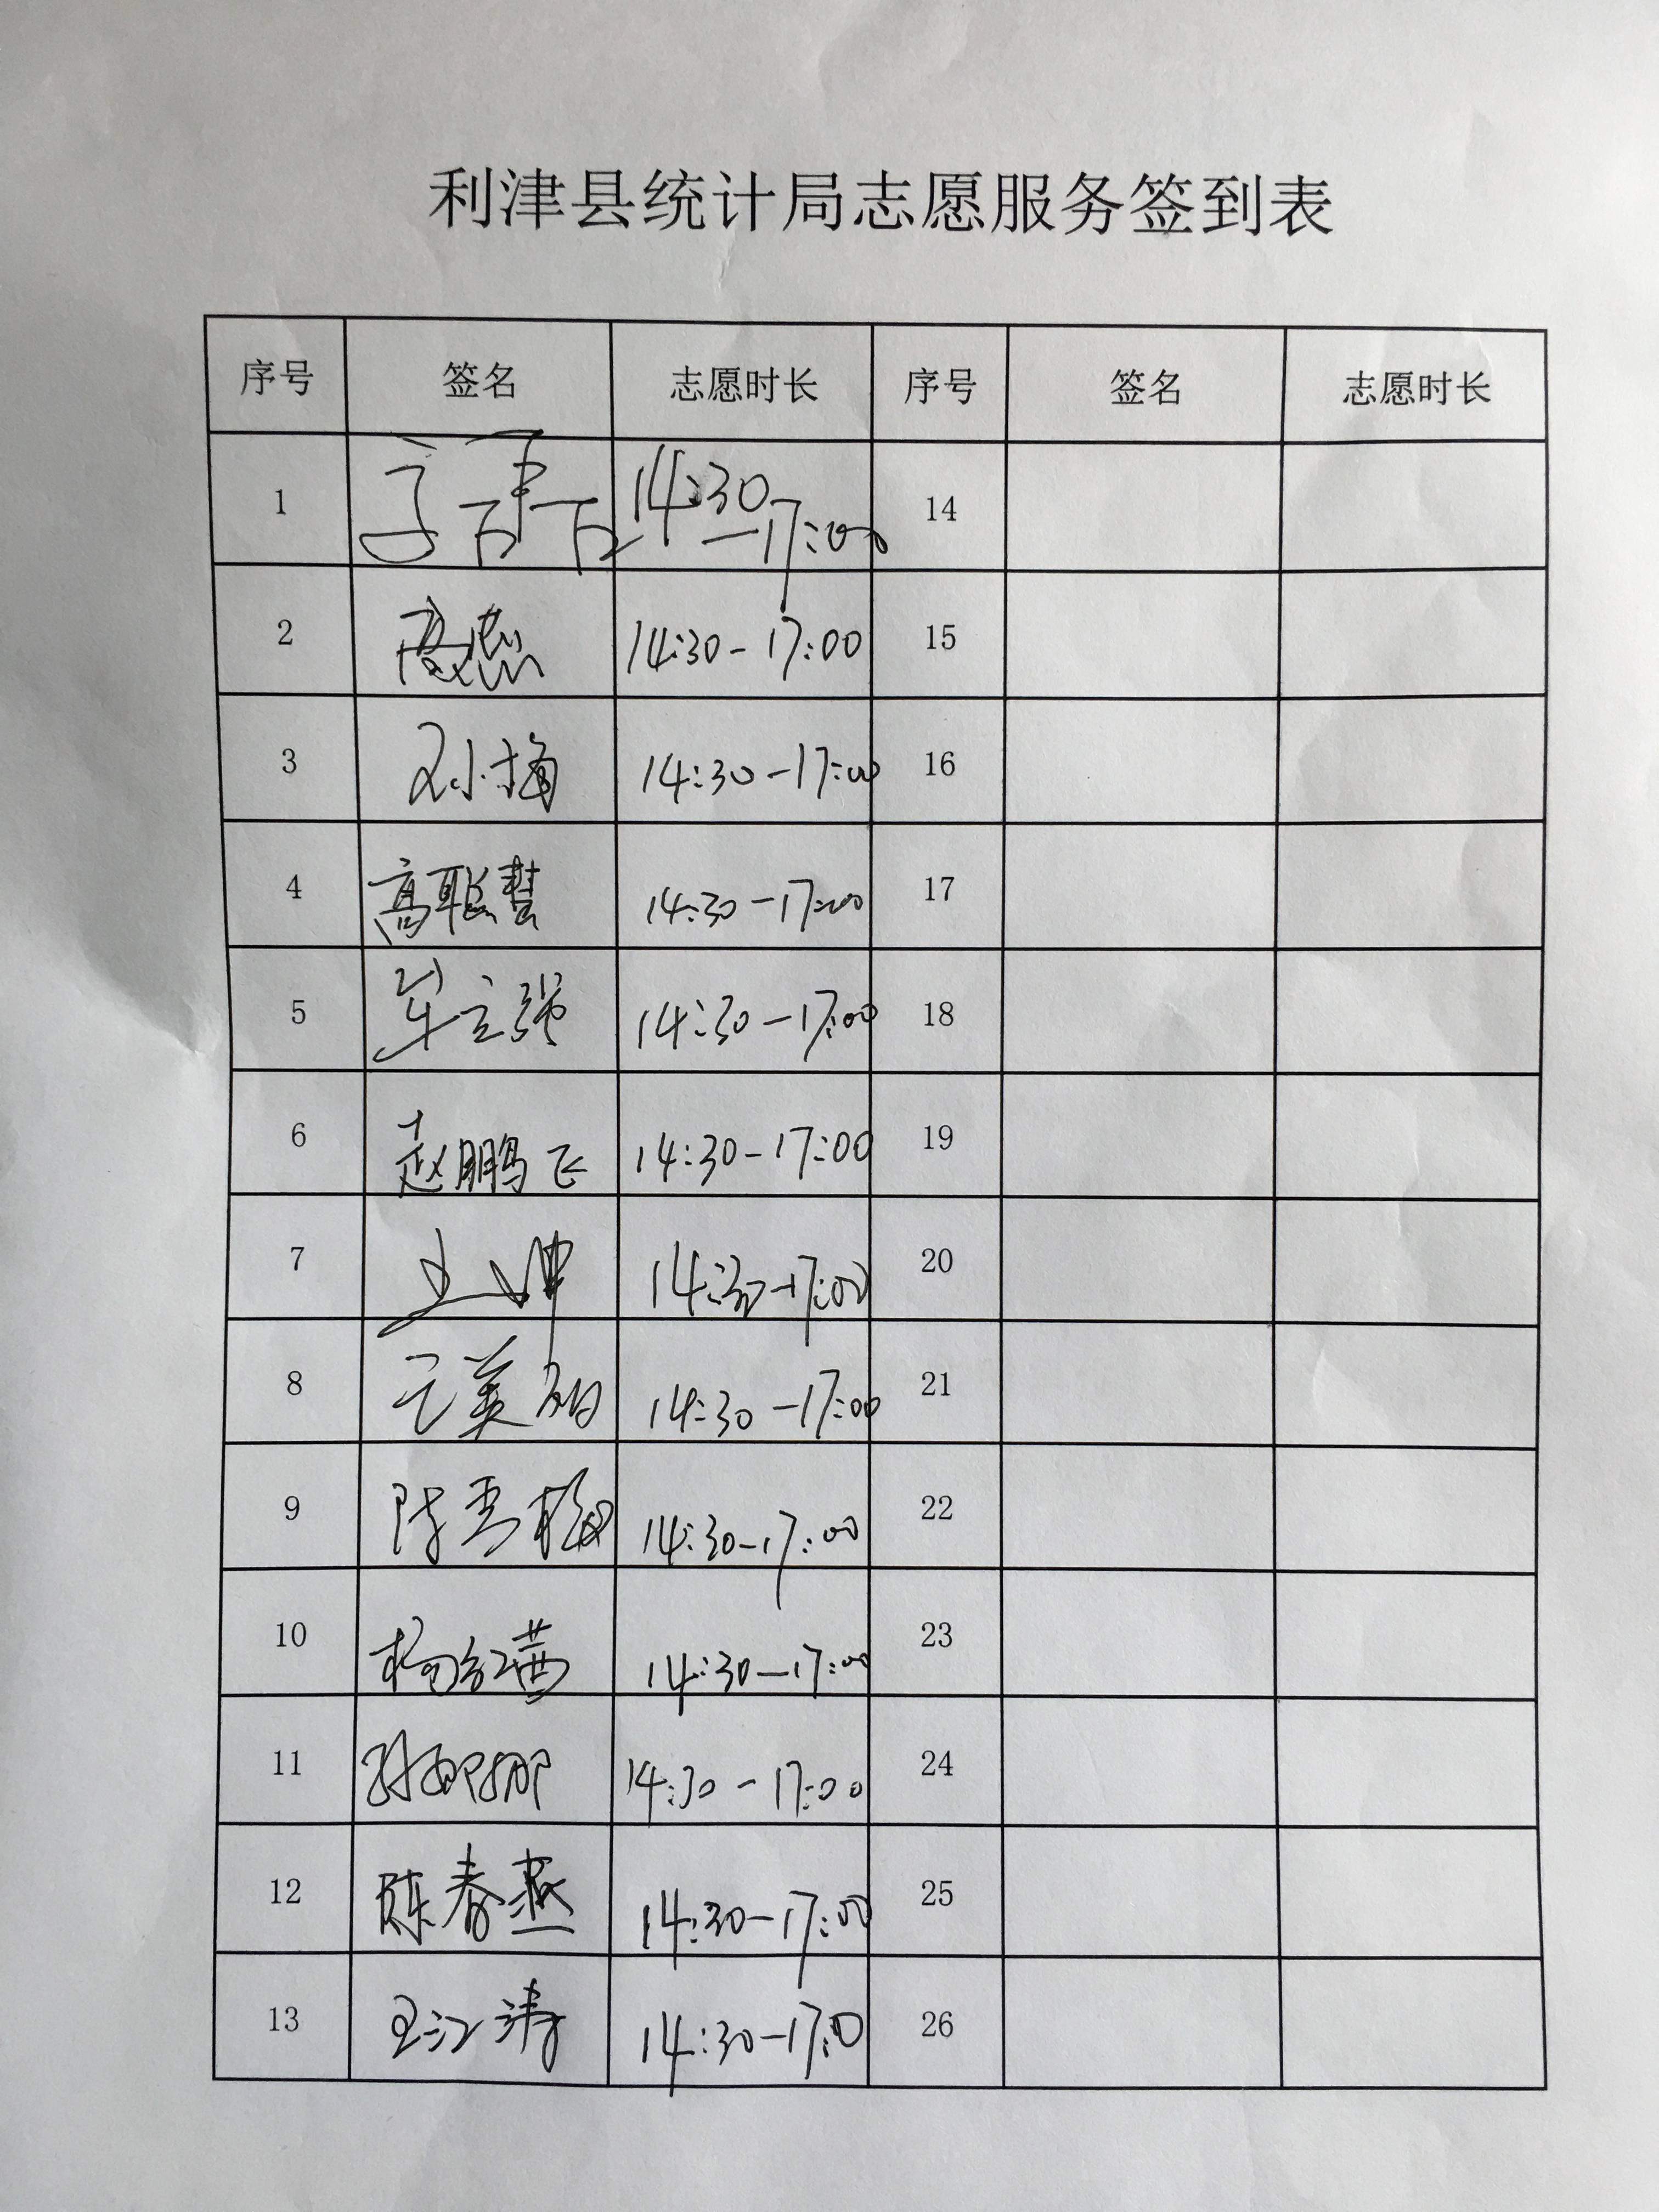 利津县统计局志愿服务签到表
序号 签名 志愿时长 序号 签名 志愿时长
1 14:30—17:00 14
2 14:30-17:00 15
3 孙小梅 14:30-17:00 16
4 高聪慧 14:30-17:00 17
5 14:30-17:00 18
6 赵鹏飞 14:30-17:00 19
7 14:30-17:00 20
8 14:30-17:00 21
9 陈秀梅 14:30-17:00 22
10 杨红茜 14:30-17:00 23
11 14:30-17:00 24
12 陈春燕 14:30-17:00 25
13 王江涛 14:30-17:0 26